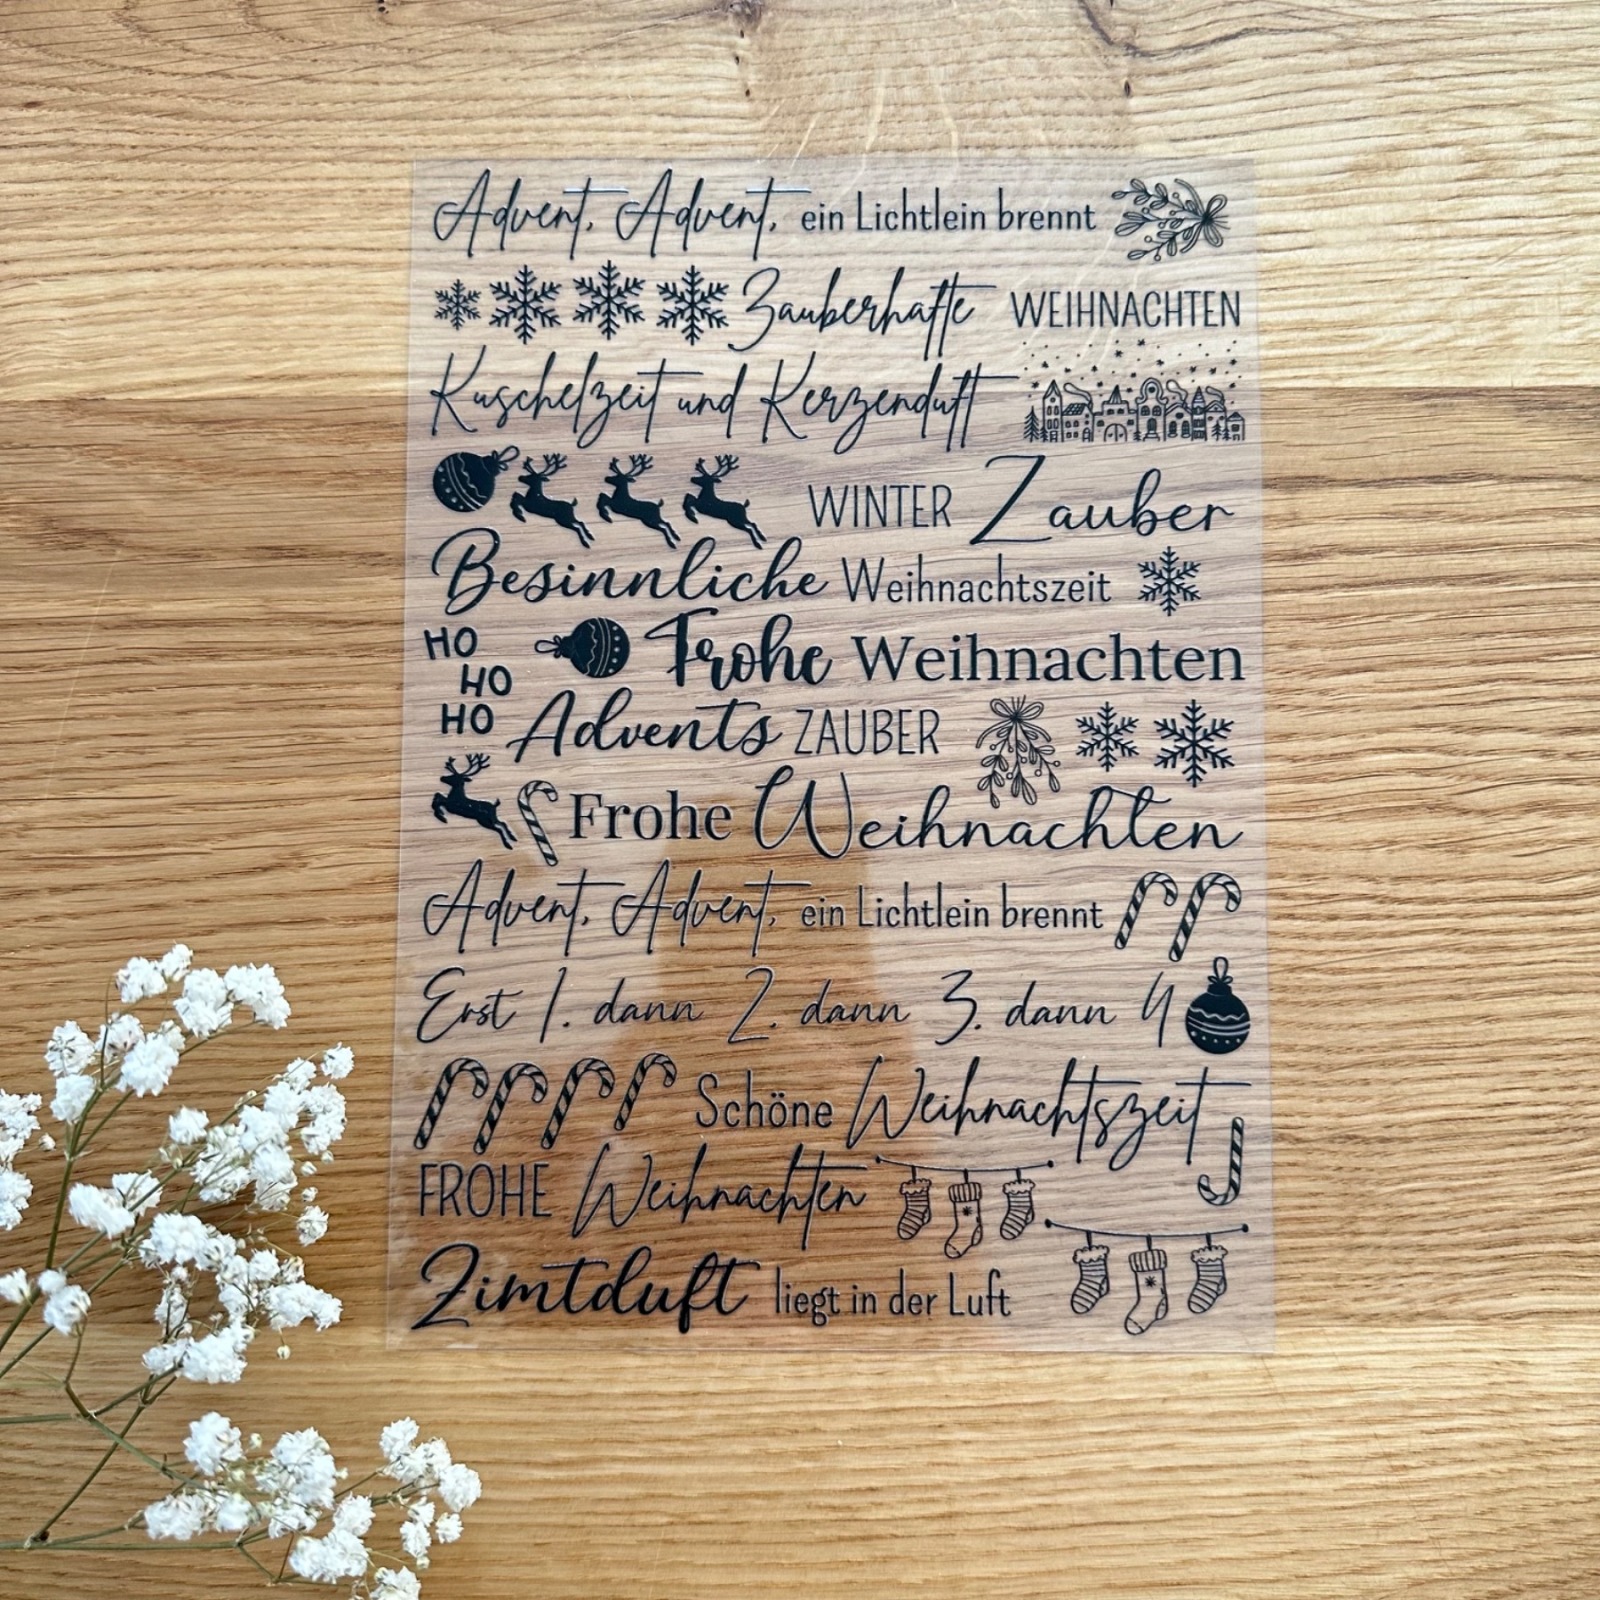 Advent, Advent, ein Lichtlein brennt
Zauberhafte WEIHNACHTEN
Kuschelzeit und Kerzenduft
WINTER Zauber
Besinnliche Weihnachtszeit
HO
HO
HO
Frohe Weihnachten
Advents ZAUBER
Frohe Weihnachten
Advent, Advent, ein Lichtlein brennt
Erst 1. dann 2. dann 3. dann 4
Schöne Weihnachtszeit
FROHE Weihnachten
Zimtduft liegt in der Luft